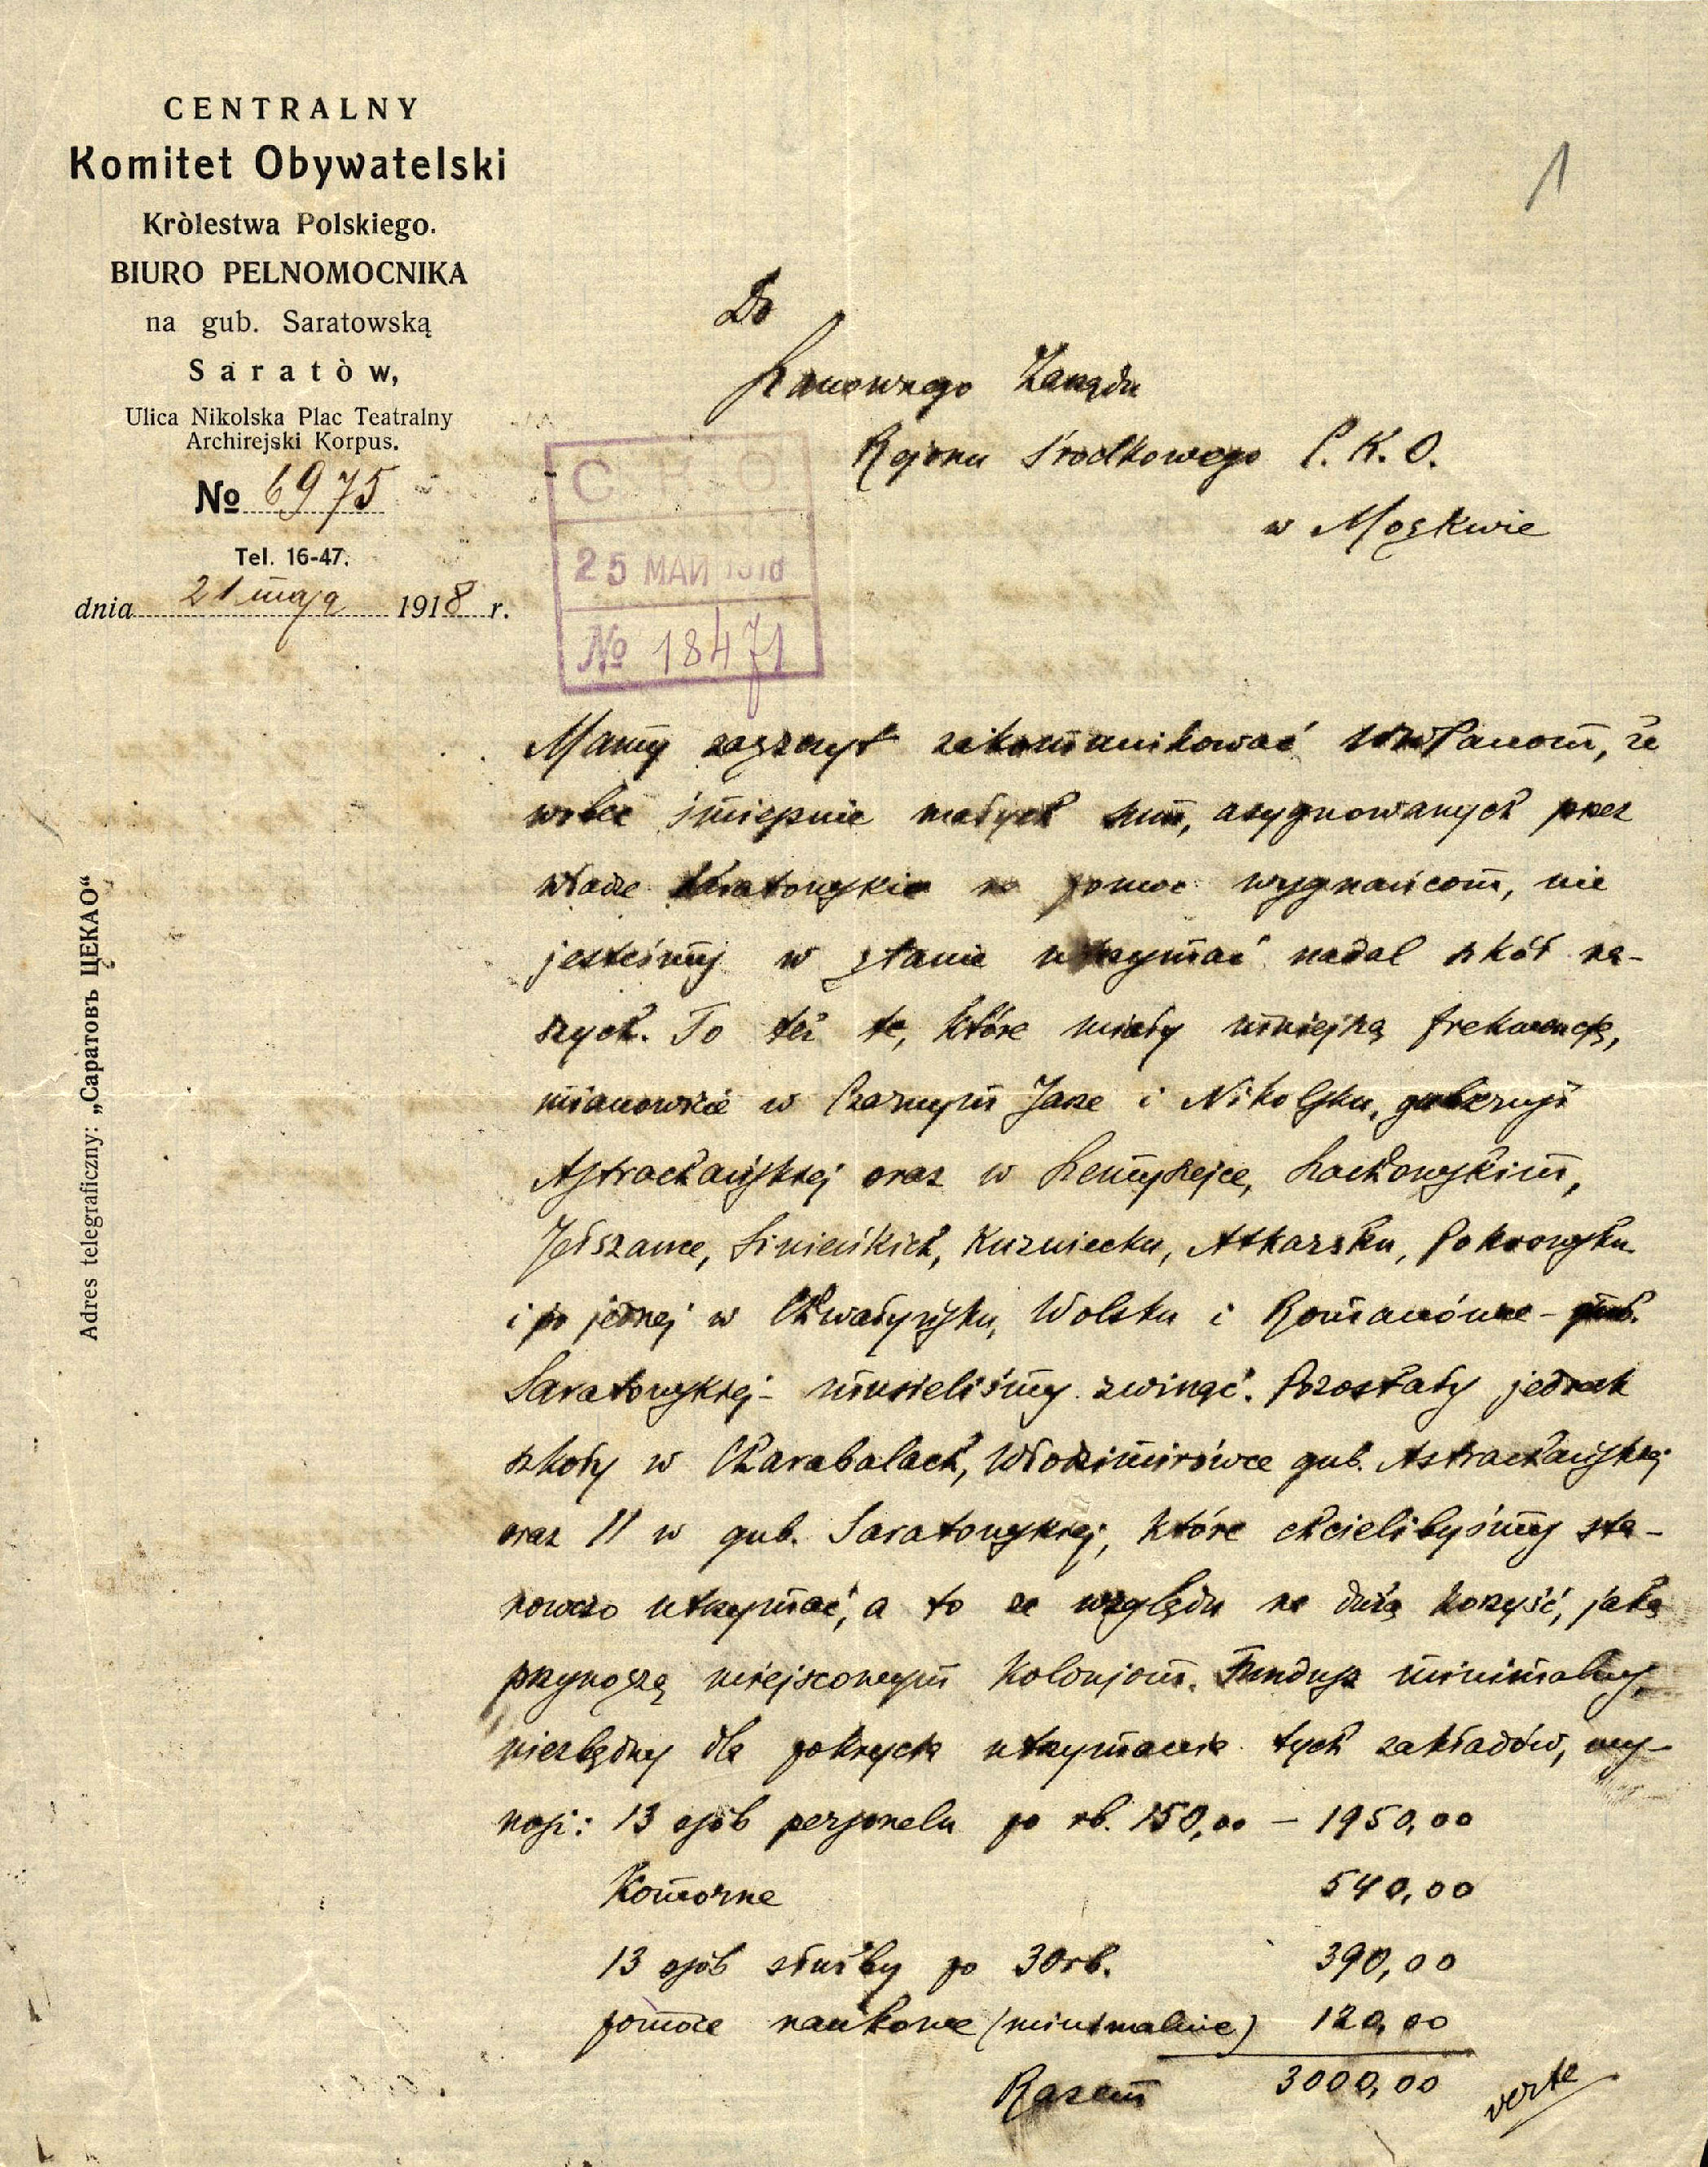 CENTRALNY
Komitet Obywatelski
Kròlestwa Polskiego.
BIURO PELNOMOCNIKA
na gub. Saratowską
Saratòw,
Ulica Nikolska Plac Teatralny
Archirejski Korpus.
№ 6975
Tel. 16-47.
dnia 21 maja 1918 r.
Adres telegraficzny: „Саратовъ ЦЕКАО“
1
C K O
25 МАЙ 1918
№ 18471
Do
Szanownego Zarządu
Rejonu Środkowego P. K. O.
w Moskwie
Mamy zaszczyt zakomunikować WWPanom, że
wobec śmiesznie małych sum, asygnowanych przez
władze Saratowskie na pomoc wygnańcom, nie
jesteśmy w stanie utrzymać nadal szkół na-
szych. To też te, które miały mniejszą frekwencję,
mianowicie w Czarnym Jarze i Nikolsku, gubernji
Astrachańskiej oraz w Łachowskim,
Jelszance, Sinieńkich, Kuzniecku, Atkarsku, Pokrowsku
i po jednej w Chwałyńsku, Wolsku i Romanówce - gub.
Saratowskiej - musieliśmy zwinąć. Pozostały jednak
szkoły w Charabalach, Włodzimirówce gub. Astrachańskiej
oraz 11 w gub. Saratowskiej, które chcielibyśmy sta-
nowczo utrzymać, a to ze względu na dużą korzyść, jaką
przynoszą miejscowym kolonjom. Fundusz minimalny,
niezbędny dla pokrycia utrzymania tych zakładów, wy-
nosi: 13 osób personelu po rb. 150,00 - 1950,00
Komorne 540,00
13 osób służby po 30 rb. 390,00
pomoce naukowe (minimalnie) 120,00
Razem 3000,00
verte